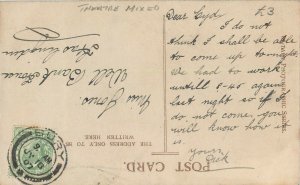 THEATRE MIXED
£3
Dear Cyd
I do not
think I shall be able
to come up tonight
We had to work
untill 8-45 again
last night so if I
do not come, you
will know how it
is
yours
Dick
Miss Jones
Well Bank Farm
POST CARD.
THE ADDRESS ONLY TO BE
WRITTEN HERE
BURY